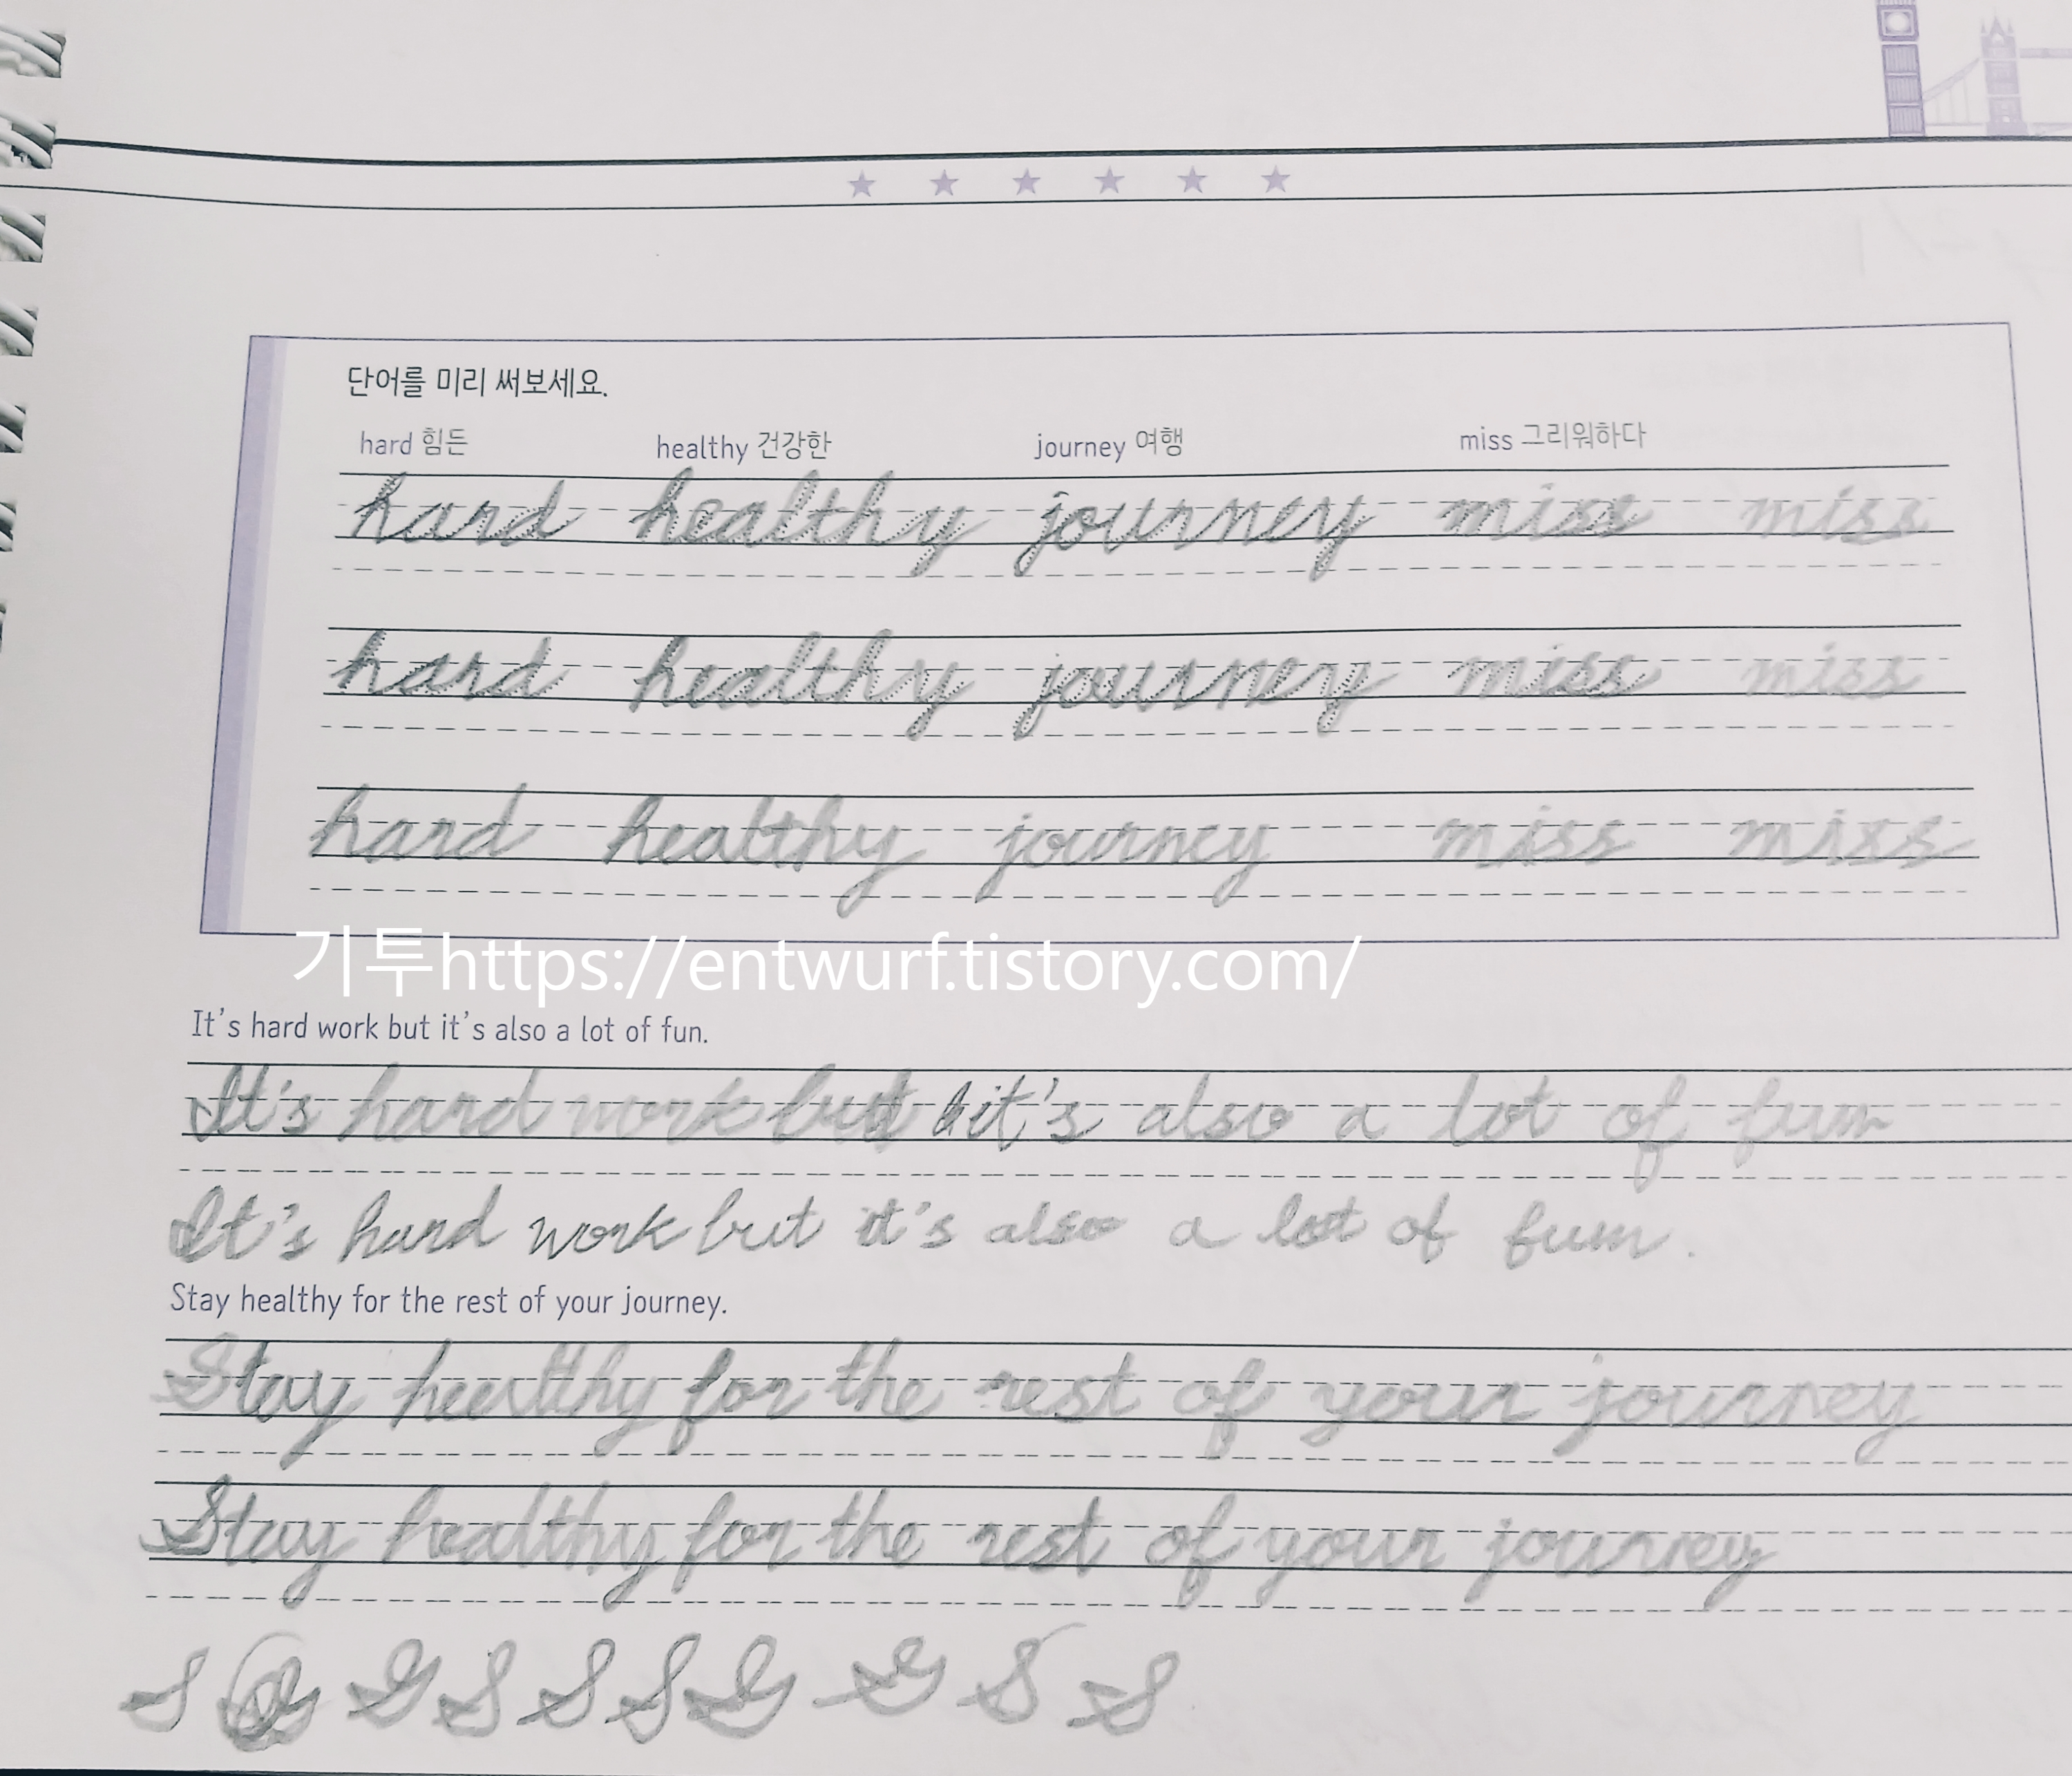 단어를 미리 써보세요.
hard 힘든 healthy 건강한 journey 여행 miss 그리워하다
hard healthy journey miss miss
hard healthy journey miss miss
hard healthy journey miss miss
기투https://entwurf.tistory.com/
It's hard work but it's also a lot of fun.
It's hard work but it's also a lot of fun
It's hard work but it's also a lot of fun.
Stay healthy for the rest of your journey.
Stay healthy for the rest of your journey
Stay healthy for the rest of your journey
S S S S S S S S S